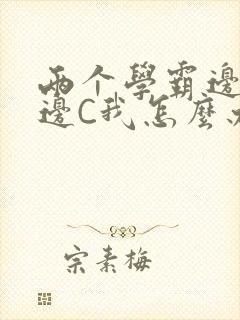 两个學霸邊
邊C我怎麼
宗素梅